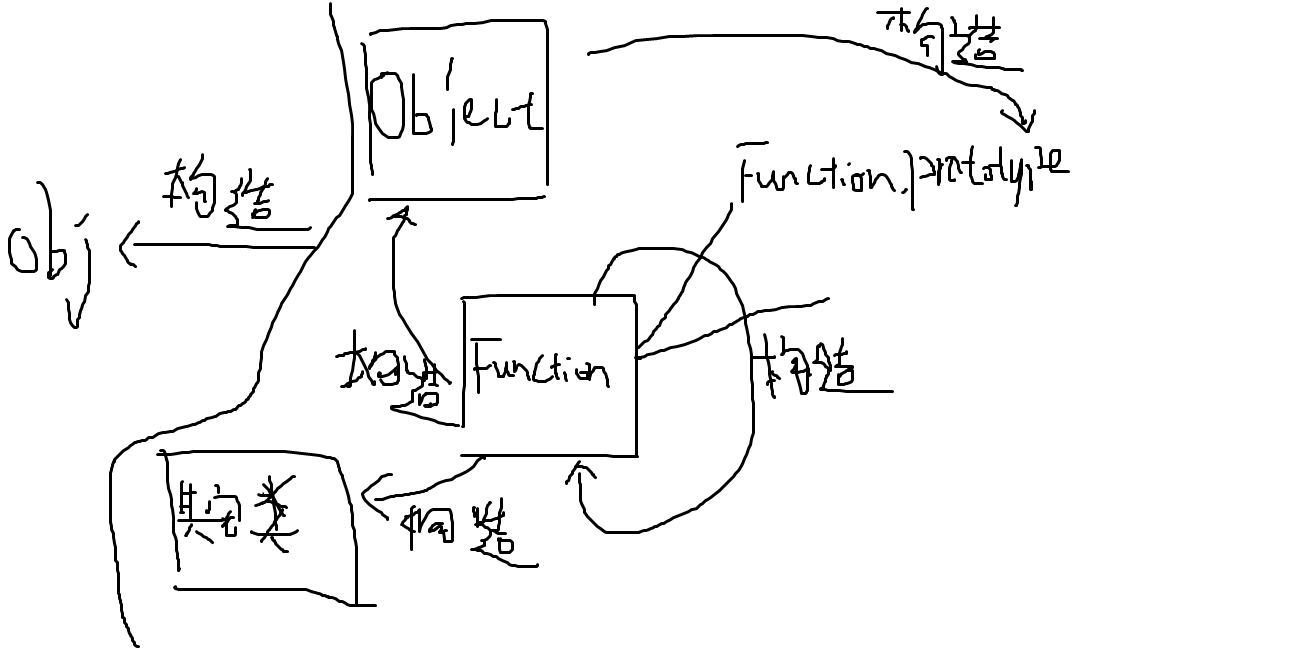 构造
Object
Function.prototype
构造
obj
构造
构造
Function
其它类
构造